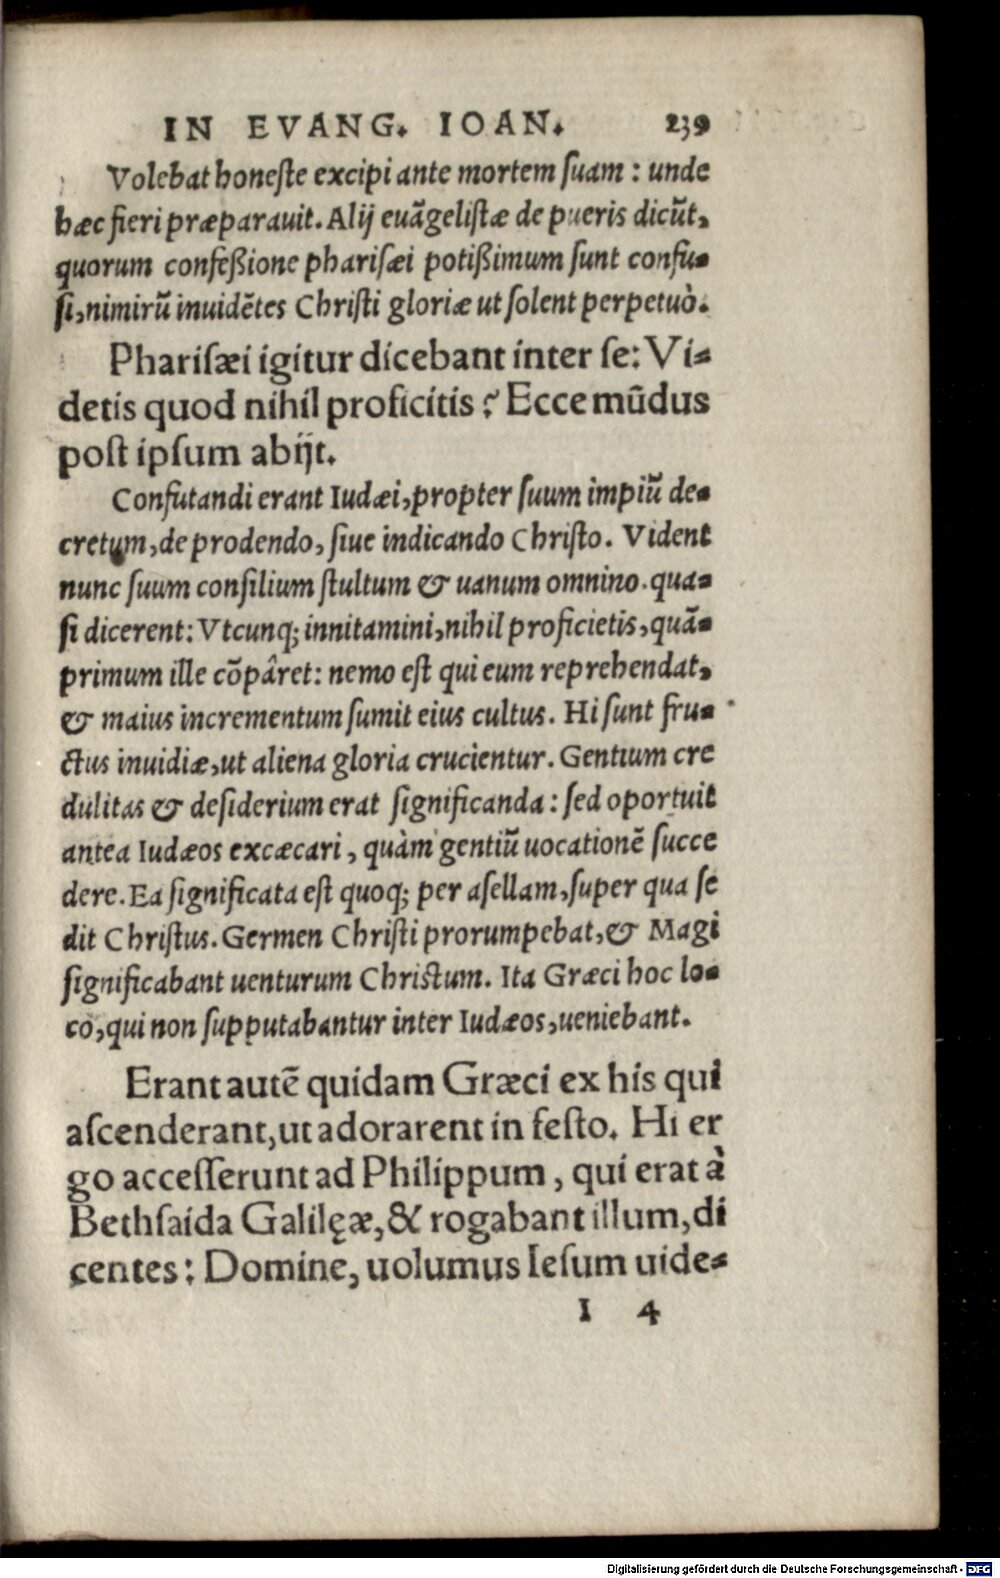 IN EVANG. IOAN. 239
Volebat honeſte excipi ante mortem ſuam: unde
hæc fieri præparauit. Alij euãgeliſtæ de pueris dicũt,
quorum confeßione phariſæi potißimum ſunt confu-
ſi, nimirũ inuidẽtes Chriſti gloriæ ut ſolent perpetuò.
Phariſæi igitur dicebant inter ſe: Vi-
detis quod nihil proficitis? Ecce mũdus
poſt ipſum abijt.
Confutandi erant Iudæi, propter ſuum impiũ de-
cretum, de prodendo, ſiue indicando Chriſto. Vident
nunc ſuum conſilium ſtultum & uanum omnino. qua-
ſi dicerent: Vtcunq; innitamini, nihil proficietis, quã-
primum ille cõpâret: nemo eſt qui eum reprehendat,
& maius incrementum ſumit eius cultus. Hi ſunt fru-
ctus inuidiæ, ut aliena gloria crucientur. Gentium cre
dulitas & deſiderium erat ſignificanda: ſed oportuit
antea Iudæos excæcari, quàm gentiũ uocationẽ ſucce
dere. Ea ſignificata eſt quoq; per aſellam, ſuper qua ſe
dit Chriſtus. Germen Chriſti prorumpebat, & Magi
ſignificabant uenturum Chriſtum. Ita Græci hoc lo-
co, qui non ſupputabantur inter Iudæos, ueniebant.
Erant autẽ quidam Græci ex his qui
aſcenderant, ut adorarent in feſto. Hi er
go acceſſerunt ad Philippum, qui erat à
Bethſaida Galilęæ, & rogabant illum, di
centes: Domine, uolumus Ieſum uide-
I 4
Digitalisierung gefördert durch die Deutsche Forschungsgemeinschaft - DFG